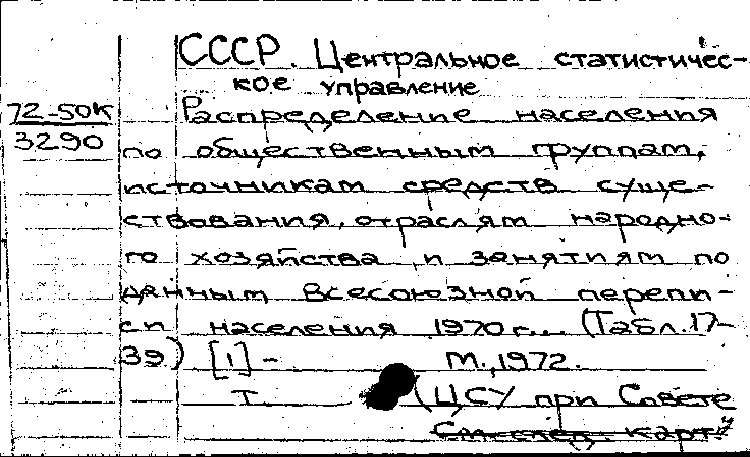 СССР. Центральное статистичес-
кое управление
72-50К
3290
Распределение населения
по общественным группам,
источникам средств суще-
ствования, отраслям народно-
го хозяйства и занятиям по
данным Всесоюзной перепи-
си населения 1970 г... (Табл. 17-
39) [1] - М., 1972.
Т. (ЦСУ при Совете
См. след. карт.